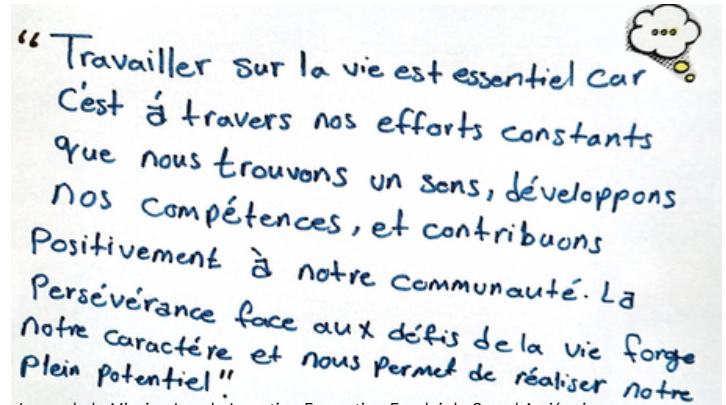 “ Travailler sur la vie est essentiel car
C'est à travers nos efforts constants
que nous trouvons un sens, développons
nos compétences, et contribuons
Positivement à notre communauté. La
Persévérance face aux défis de la vie forge
notre caractére et nous permet de réaliser notre
Plein potentiel"